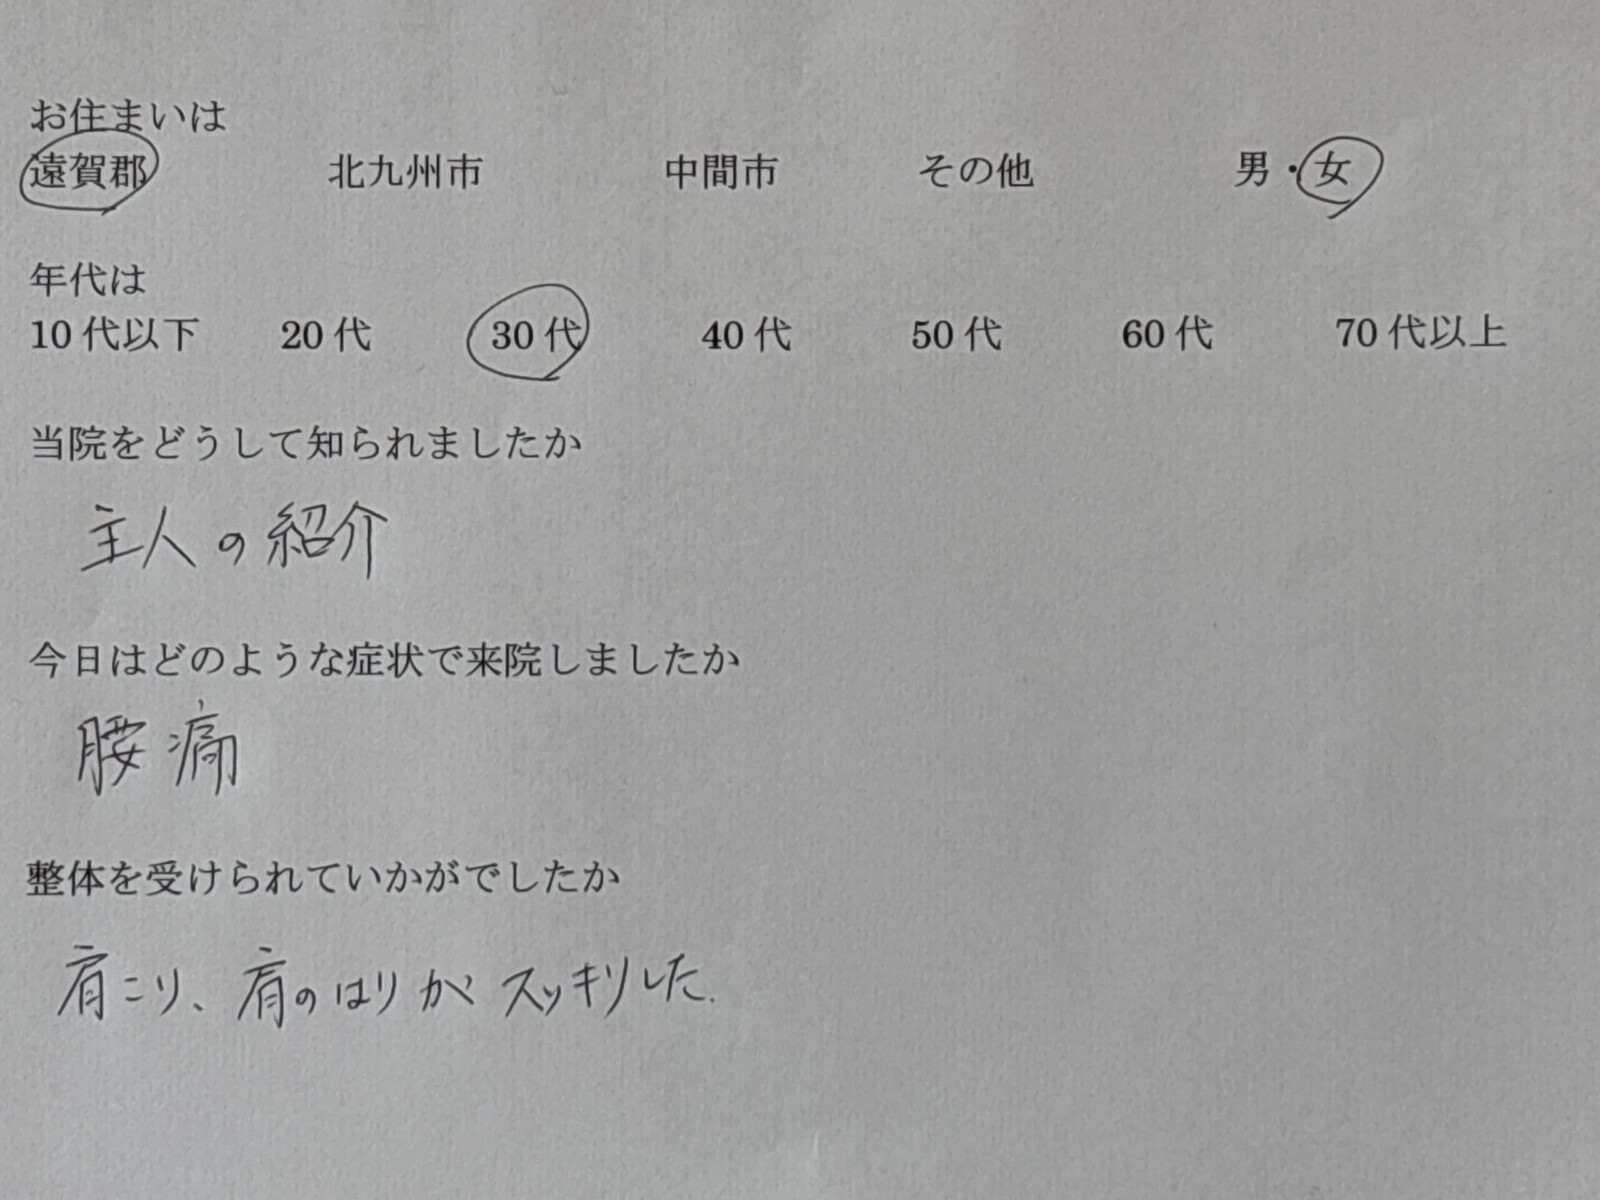 お住まいは
遠賀郡 北九州市 中間市 その他 男・女
年代は
10代以下 20代 30代 40代 50代 60代 70代以上
当院をどうして知られましたか
主人の紹介
今日はどのような症状で来院しましたか
腰痛
整体を受けられていかがでしたか
肩こり、肩のはりがスッキリした.